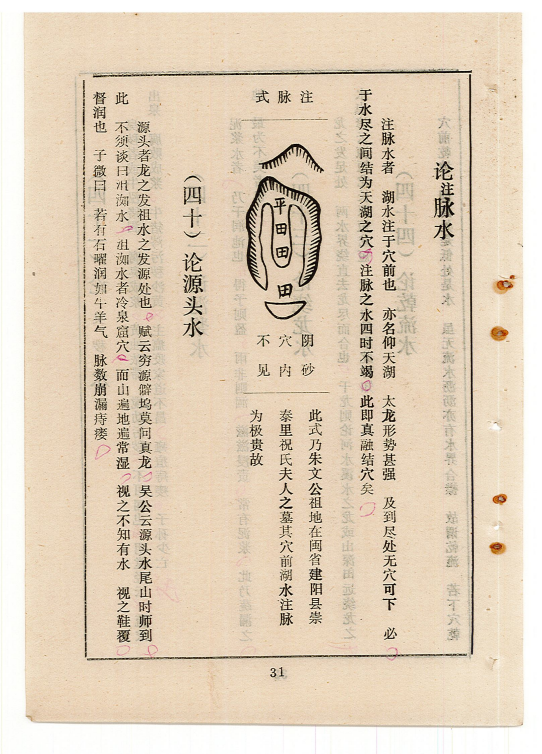 论注脉水
注脉水者 湖水注于穴前也 亦名仰天湖 太龙形势甚强 及到尽处无穴可下 必
于水尽之间结为天湖之穴 注脉之水四时不竭 此即真融结穴矣
注脉式
平
田
田
田
阴砂
穴内
不见
此式乃朱文公祖地在闽省建阳县崇
泰里祝氏夫人之墓其穴前湖水注脉
为极贵故
(四十)论源头水
源头者龙之发祖水之发源处也 赋云穷源僻坞莫问真龙 吴公云源头水尾山时师到
此 不须谈曰沮洳水 沮洳水者冷泉窟穴 而山遍地遍常湿 视之不知有水 视之鞋覆
督润也 子微曰 若有石曜润如牛羊气 脉数崩漏痔瘘
31